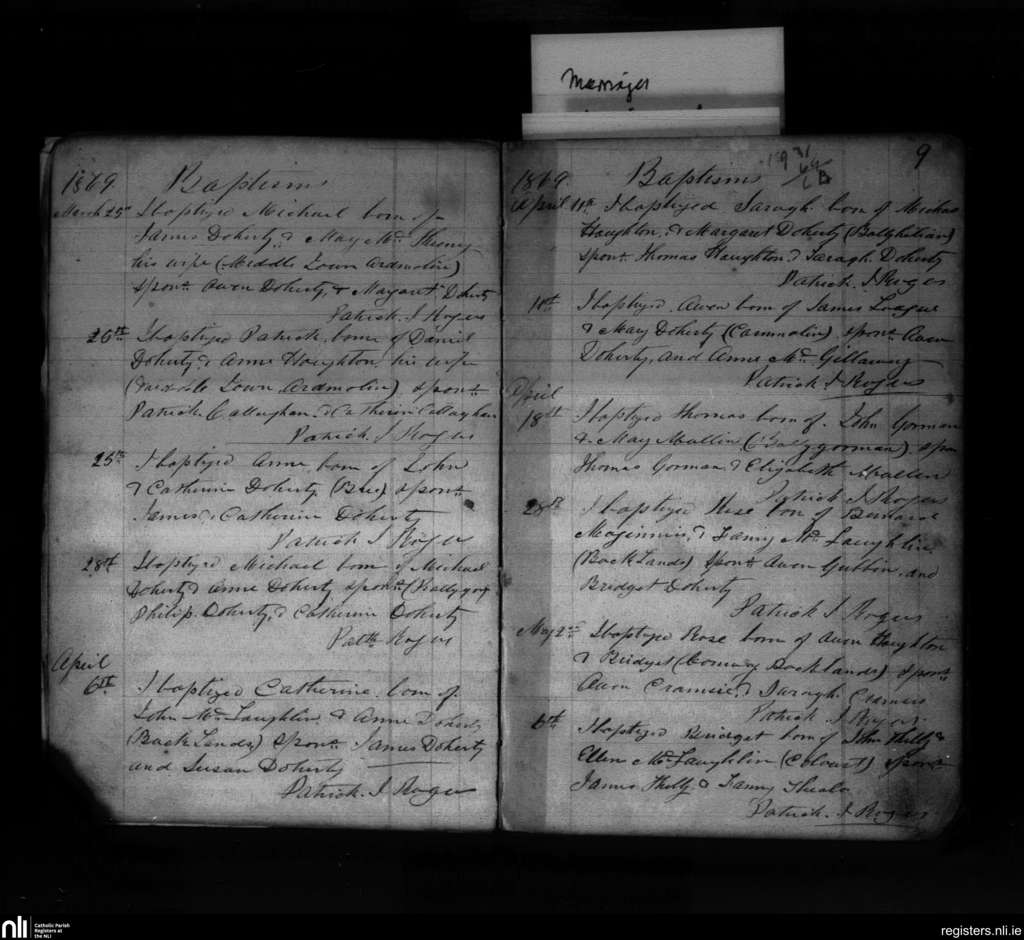 Marriages
1869 Baptisms
March 25th I baptized Michael born of
James Doherty, & May Mc
his wife (Middle Town Ardmalin)
Spons. Owen Doherty, & Margaret Doherty
Patrick J Rogers
26th I baptized Patrick, born of Daniel
Doherty & Anne Houghton his wife
(Middle Town Ardmalin) Spons.
Patrick Callaghan, & Catherine Callaghan
Patrick J Rogers
25th I baptized Anne born of John
& Catherine Doherty (Bree) spons.
James & Catherine Doherty
Patrick J Rogers
28th I baptized Michael born of Michael
Doherty & Anne Doherty spons.
Philip Doherty, & Catherine Doherty
Patk Rogers
April
6th I baptized Catherine, born of
John McLaughlin, & Anne Doherty
(Back Lands) Spons. James Doherty
and Susan Doherty
Patrick J Rogers
9
1869 Baptisms
April 11th I baptized Saragh born of
Houghton, & Margaret Doherty
Spons. Thomas Houghton & Saragh Doherty
Patrick J Rogers
11th I baptized Owen born of James League
& May Doherty spons. Owen
Doherty, and Anne Mc
Patrick J Rogers
April
18th I baptized Thomas born of John Gorman
& May Mullin (Ballygorman) spons
Thomas Gorman & Elizabeth Mullin
Patrick J Rogers
I baptized born of Bernard
Maginnis, & Fanny McLaughlin
(Back Lands) Spons. Owen and
Bridget Doherty
Patrick J Rogers
May 2nd I baptized Rose born of Owen Houghton
& Bridget Back Lands) Spons.
Owen & Saragh
Patrick J Rogers
6th I baptized Bridget born of John &
Ellen McLaughlin spons.
James & Fanny
Patrick J Rogers
nli Catholic Parish
Registers at
the NLI
registers.nli.ie